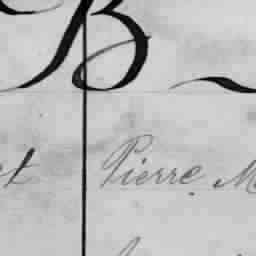 B
et Pierre M